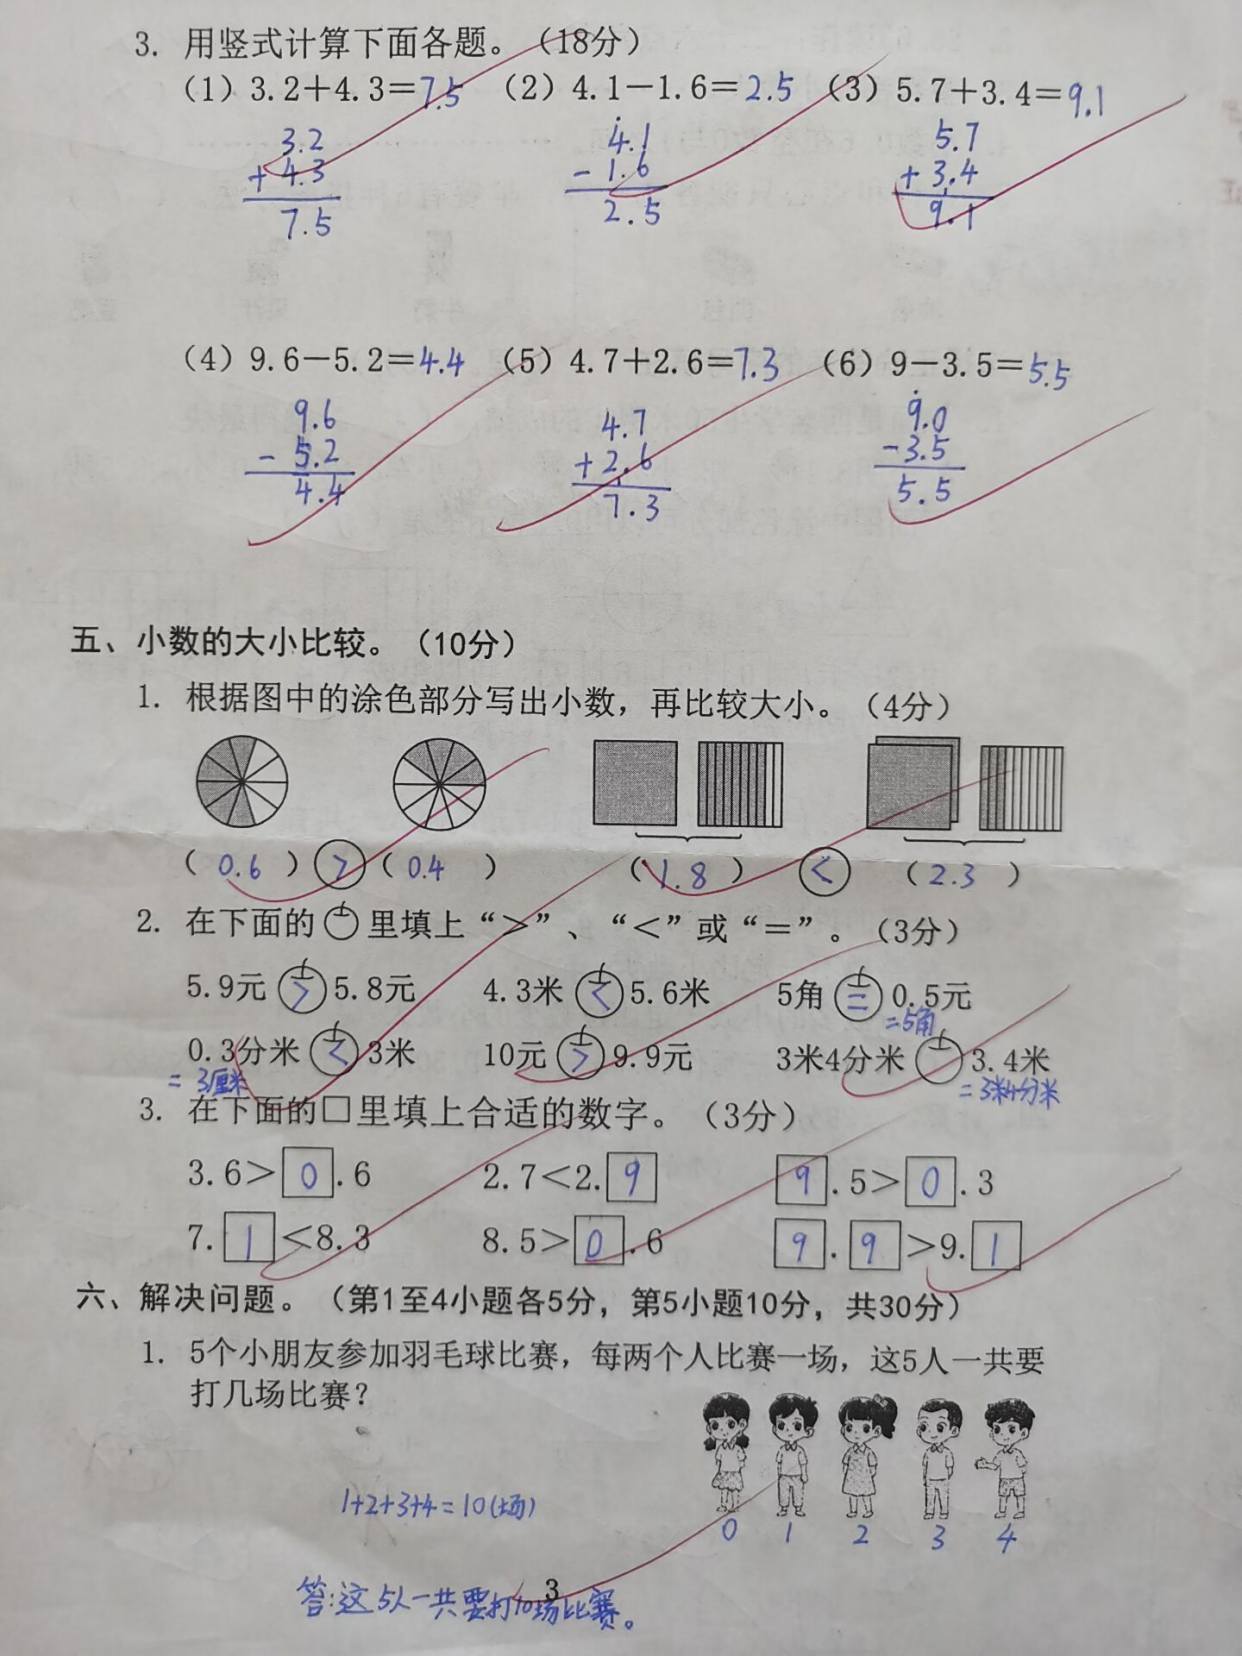 3. 用竖式计算下面各题。（18分）
（1）3.2＋4.3＝7.5 （2）4.1－1.6＝2.5 （3）5.7＋3.4＝9.1
3.2 4.1 5.7
+ 4.3 - 1.6 + 3.4
7.5 2.5 9.1
（4）9.6－5.2＝4.4 （5）4.7＋2.6＝7.3 （6）9－3.5＝5.5
9.6 4.7 9.0
- 5.2 + 2.6 - 3.5
4.4 7.3 5.5
五、小数的大小比较。（10分）
1. 根据图中的涂色部分写出小数，再比较大小。（4分）
（0.6）>（0.4） （1.8）<（2.3）
2. 在下面的○里填上“＞”、“＜”或“＝”。（3分）
5.9元>5.8元 4.3米<5.6米 5角=0.5元
=5角
0.3分米<3米 10元>9.9元 3米4分米○3.4米
=3厘米 =3米4分米
3. 在下面的□里填上合适的数字。（3分）
3.6＞0.6 2.7＜2.9 9.5＞0.3
7.1＜8.3 8.5＞0.6 9.9＞9.1
六、解决问题。（第1至4小题各5分，第5小题10分，共30分）
1. 5个小朋友参加羽毛球比赛，每两个人比赛一场，这5人一共要
打几场比赛？
1+2+3+4=10(场)
0 1 2 3 4
答:这5人一共要打10场比赛。
3